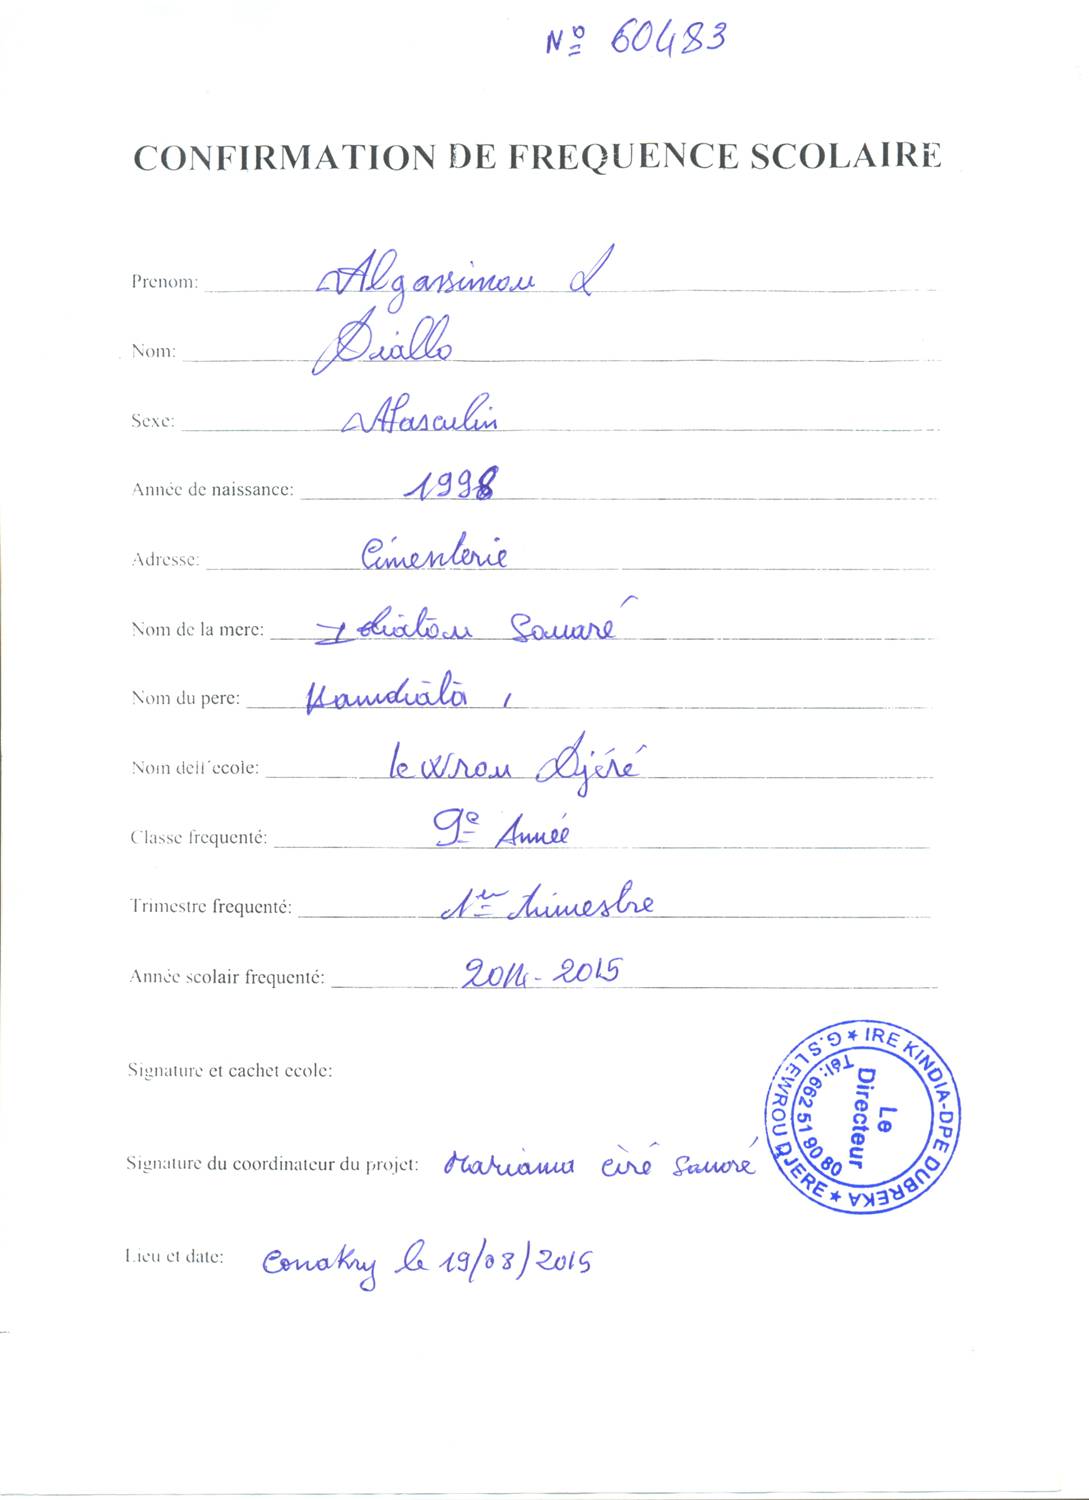 Nº 60483
CONFIRMATION DE FREQUENCE SCOLAIRE
Prenom: Algassimou L
Nom: Diallo
Sexe: Masculin
Année de naissance: 1998
Adresse: Cimenterie
Nom de la mere: Souaré
Nom du pere: Hamdiata
Nom dell'ecole: lewrou Djéré
Classe frequenté: 9e Année
Trimestre frequenté: 1er trimestre
Année scolair frequenté: 2014-2015
Signature et cachet ecole:
G.S LEWROU DJERE * IRE KINDIA-DPE DUBREKA *
Tél: 662 51 90 80
Le
Directeur
Signature du coordinateur du projet: Mariama ciré Souaré
Lieu et date: Conakry le 19/08/2015